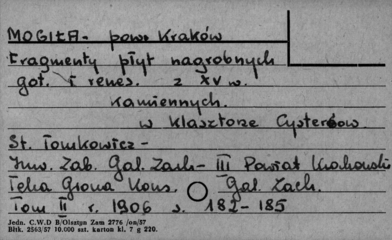 MOGIŁA - pow. Kraków
Fragmenty płyt nagrobnych
got. i renes. z XV w.
kamiennych.
w klasztorze Cystersów
St. Tomkowicz -
Inw. Zab. Gal. Zach - III Powiat Krakowski
Teka Grona Kons. Gal. Zach.
Tom II r. 1906 s. 182-185
Jedn. C.W.D B/Olsztyn Zam 2776 /on/57
Błtk. 2563/57 10.000 szt. karton kl. 7 g 220.